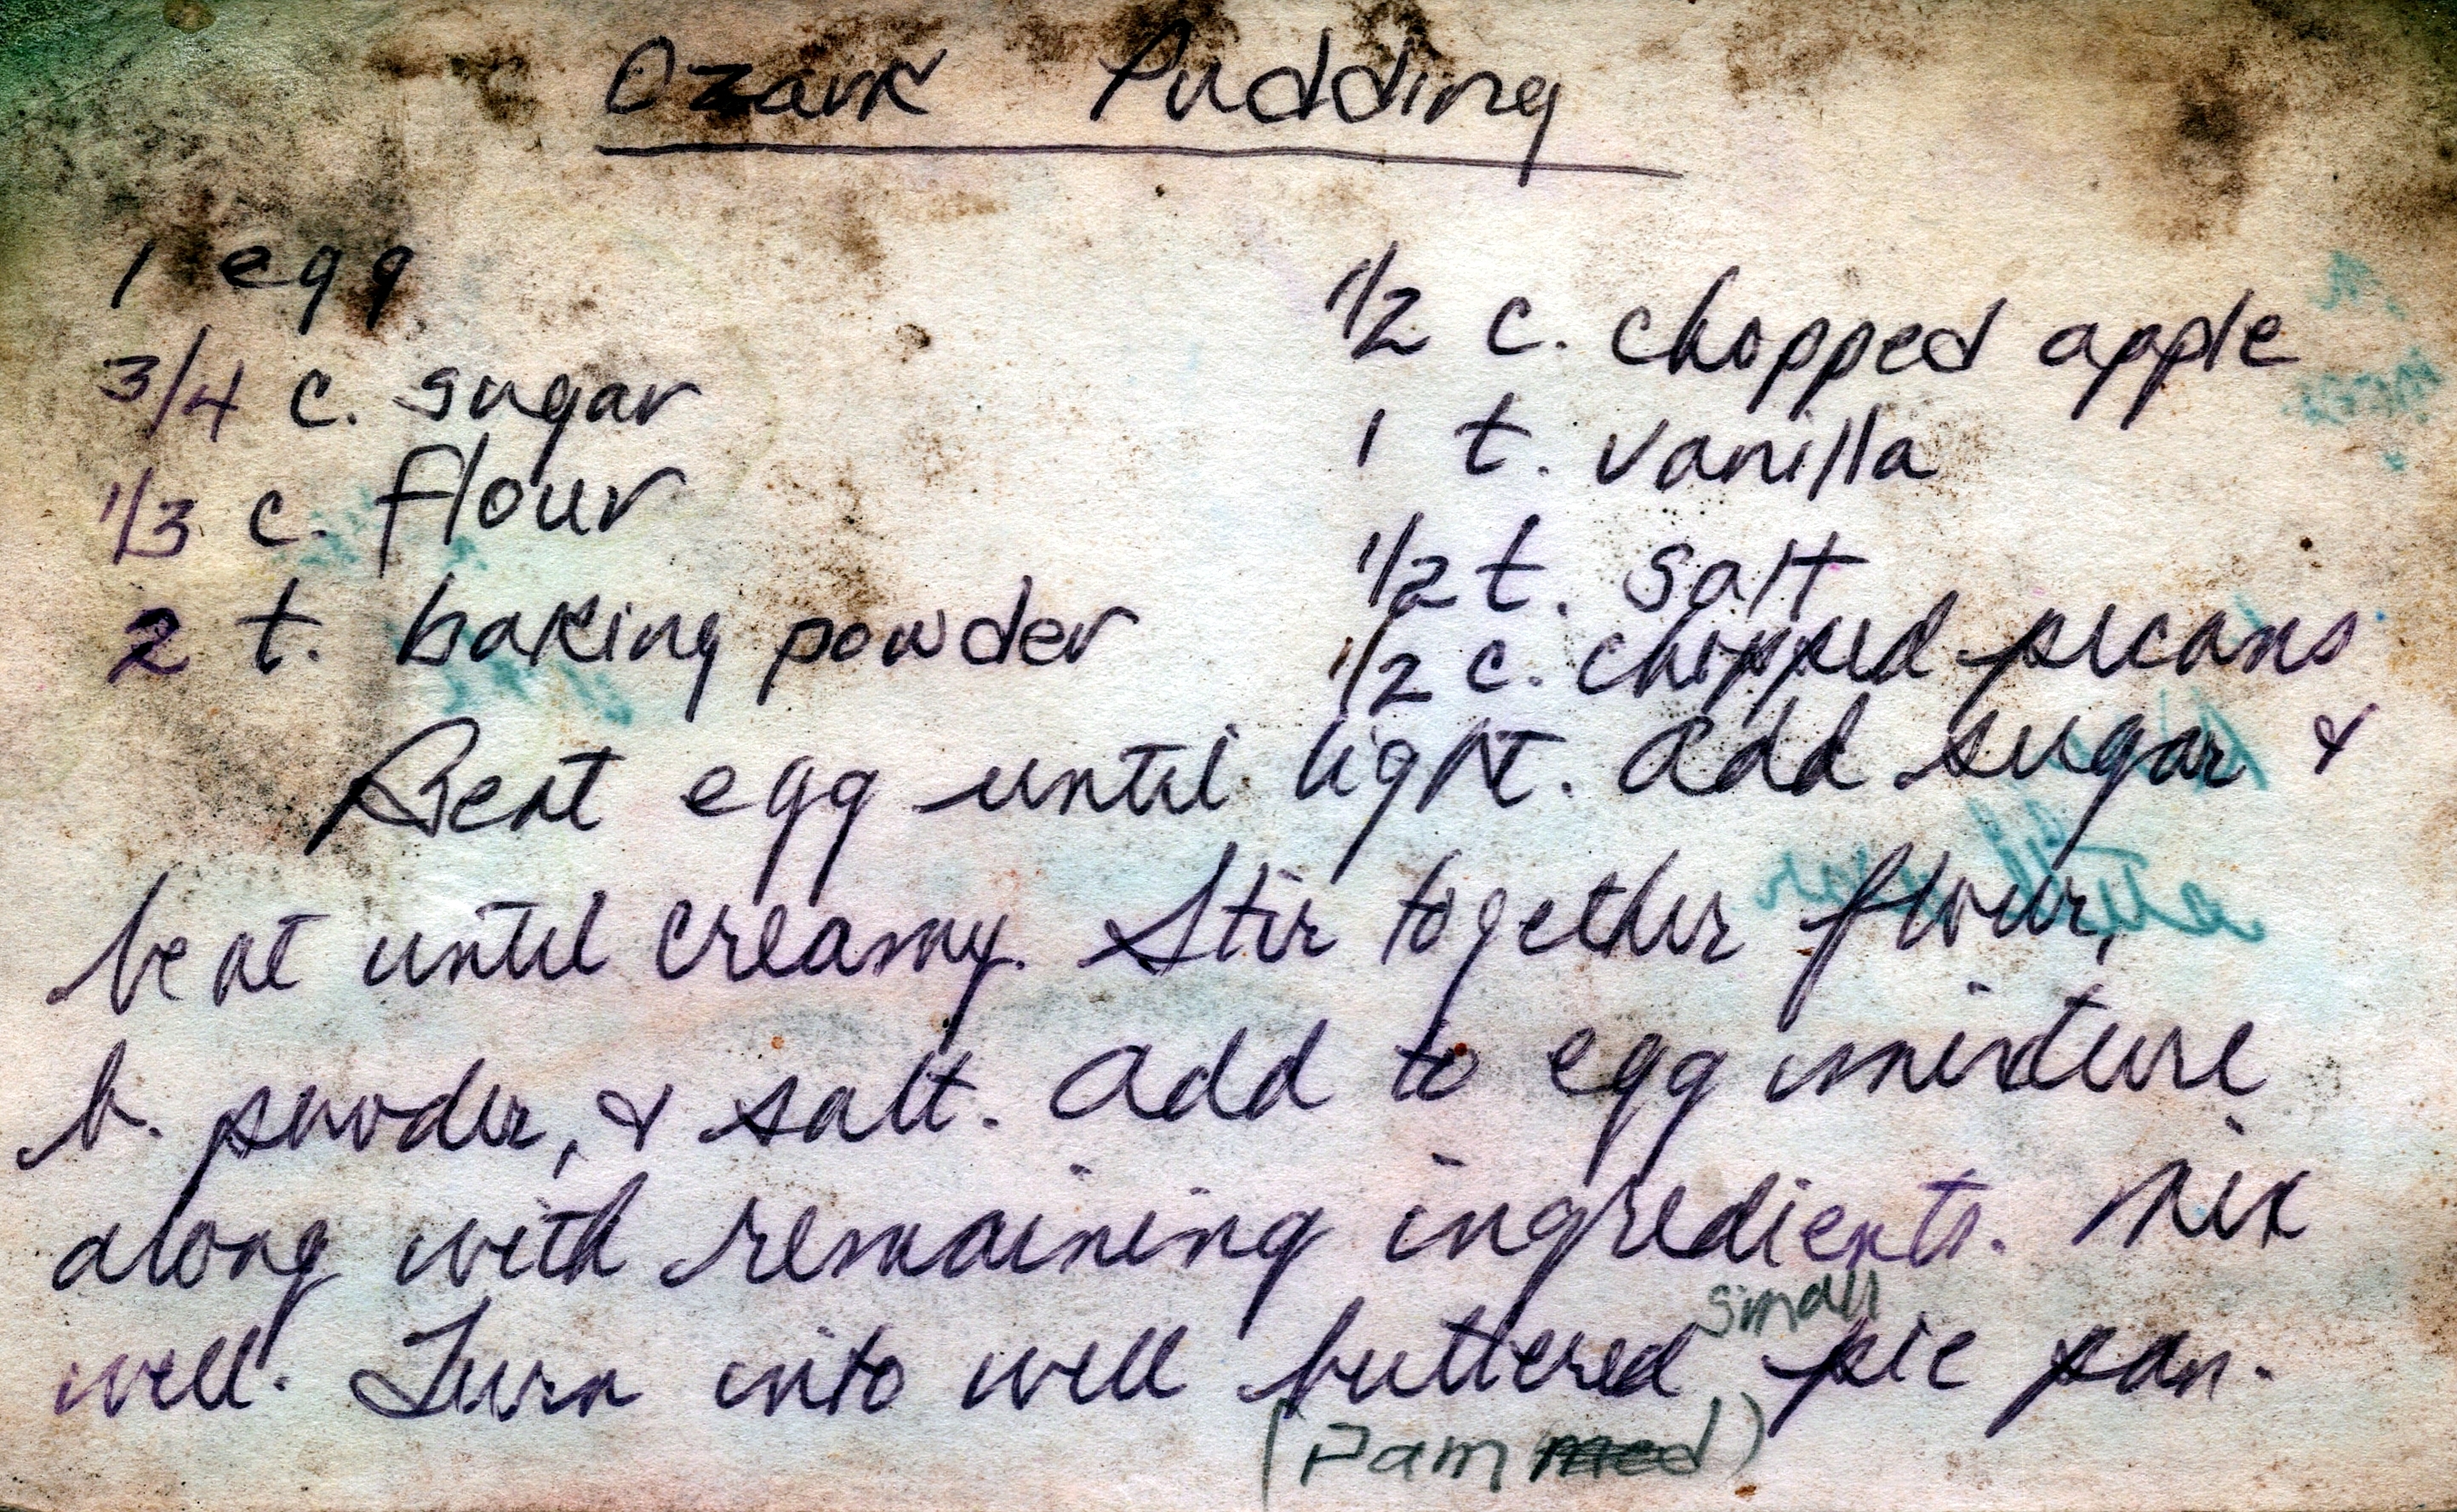 Ozark Pudding
1 egg
3/4 c. sugar
1/3 c. flour
2 t. baking powder
1/2 c. chopped apple
1 t. vanilla
1/2 t. salt
1/2 c. chopped pecans
Beat egg until light. Add sugar &
beat until creamy. Stir together flour,
b. powder, & salt. Add to egg mixture
along with remaining ingredients. Mix
well. Turn into well buttered small pie pan.
(Pam)